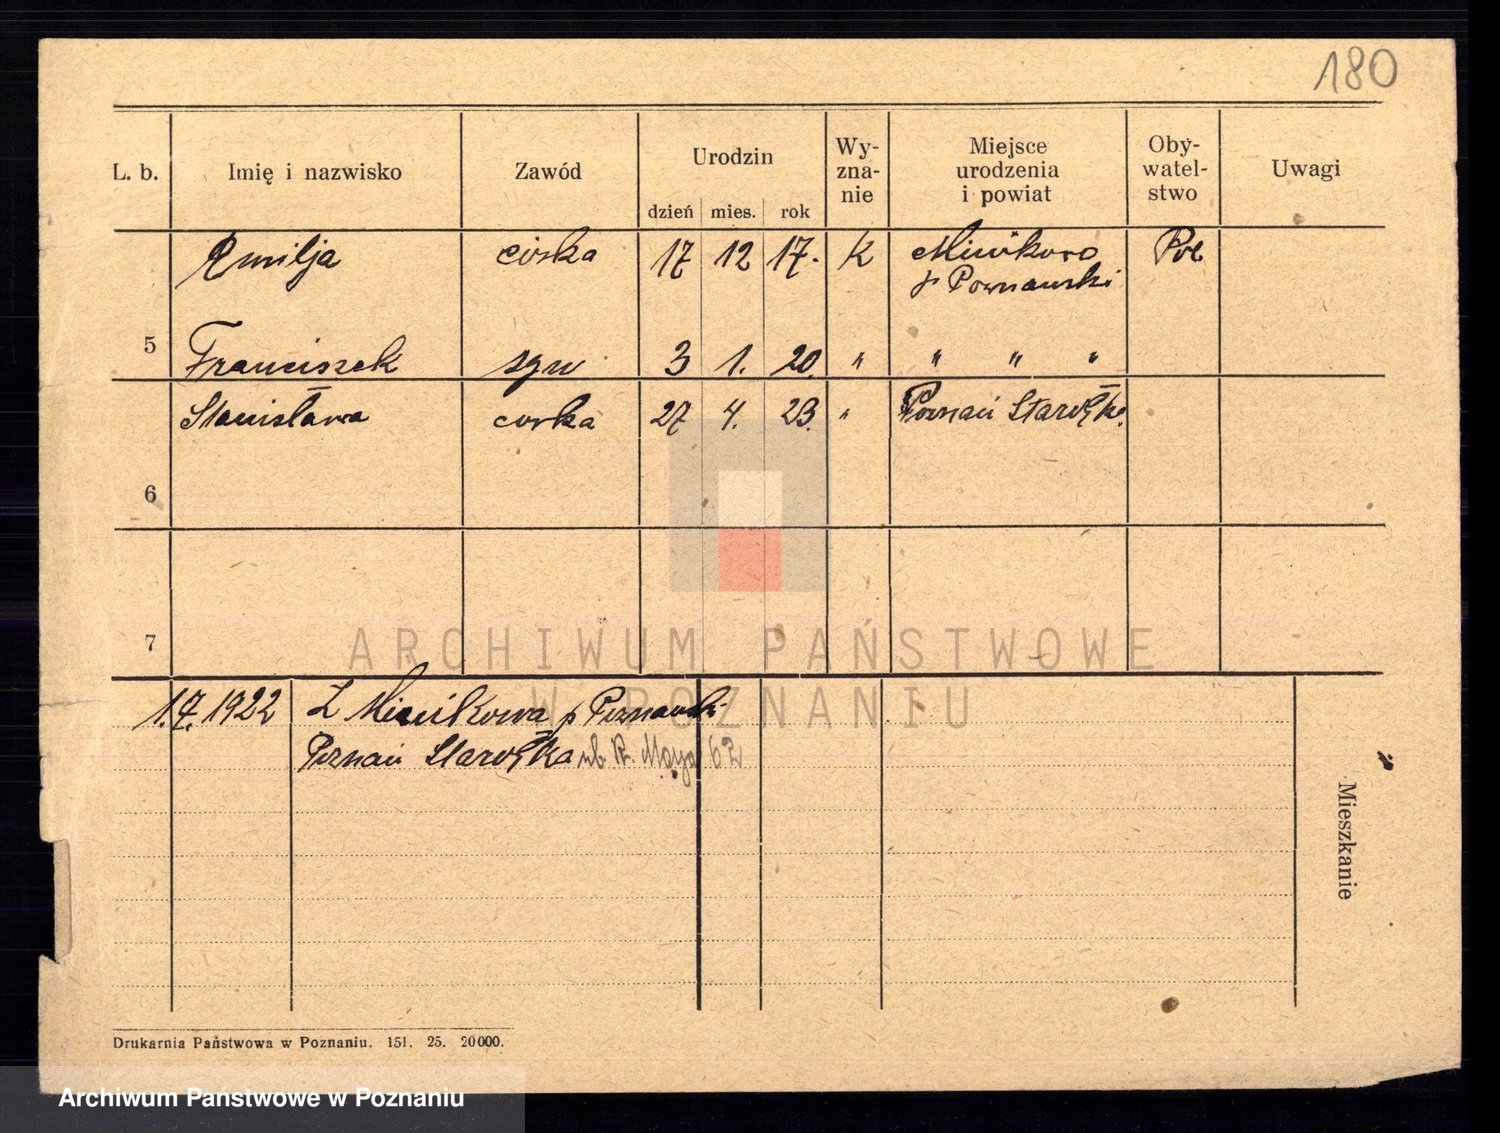 180
L. b. Imię i nazwisko Zawód Urodzin Wy- Miejsce Oby- Uwagi
zna- urodzenia watel-
nie i powiat stwo
dzień mies. rok
Emilja córka 17 12 17. k Minikowo Pol.
p Poznański
5 Franciszek syn 3 1. 20. " " " "
Stanisława corka 27 4. 23. " Poznań Starołęka
6
7
ARCHIWUM PAŃSTWOWE
W POZNANIU
1.7.1922 Z Minikowa p Poznański
Poznań Starołęka Maja 62
Mieszkanie
Drukarnia Państwowa w Poznaniu. 151. 25. 20000.
Archiwum Państwowe w Poznaniu